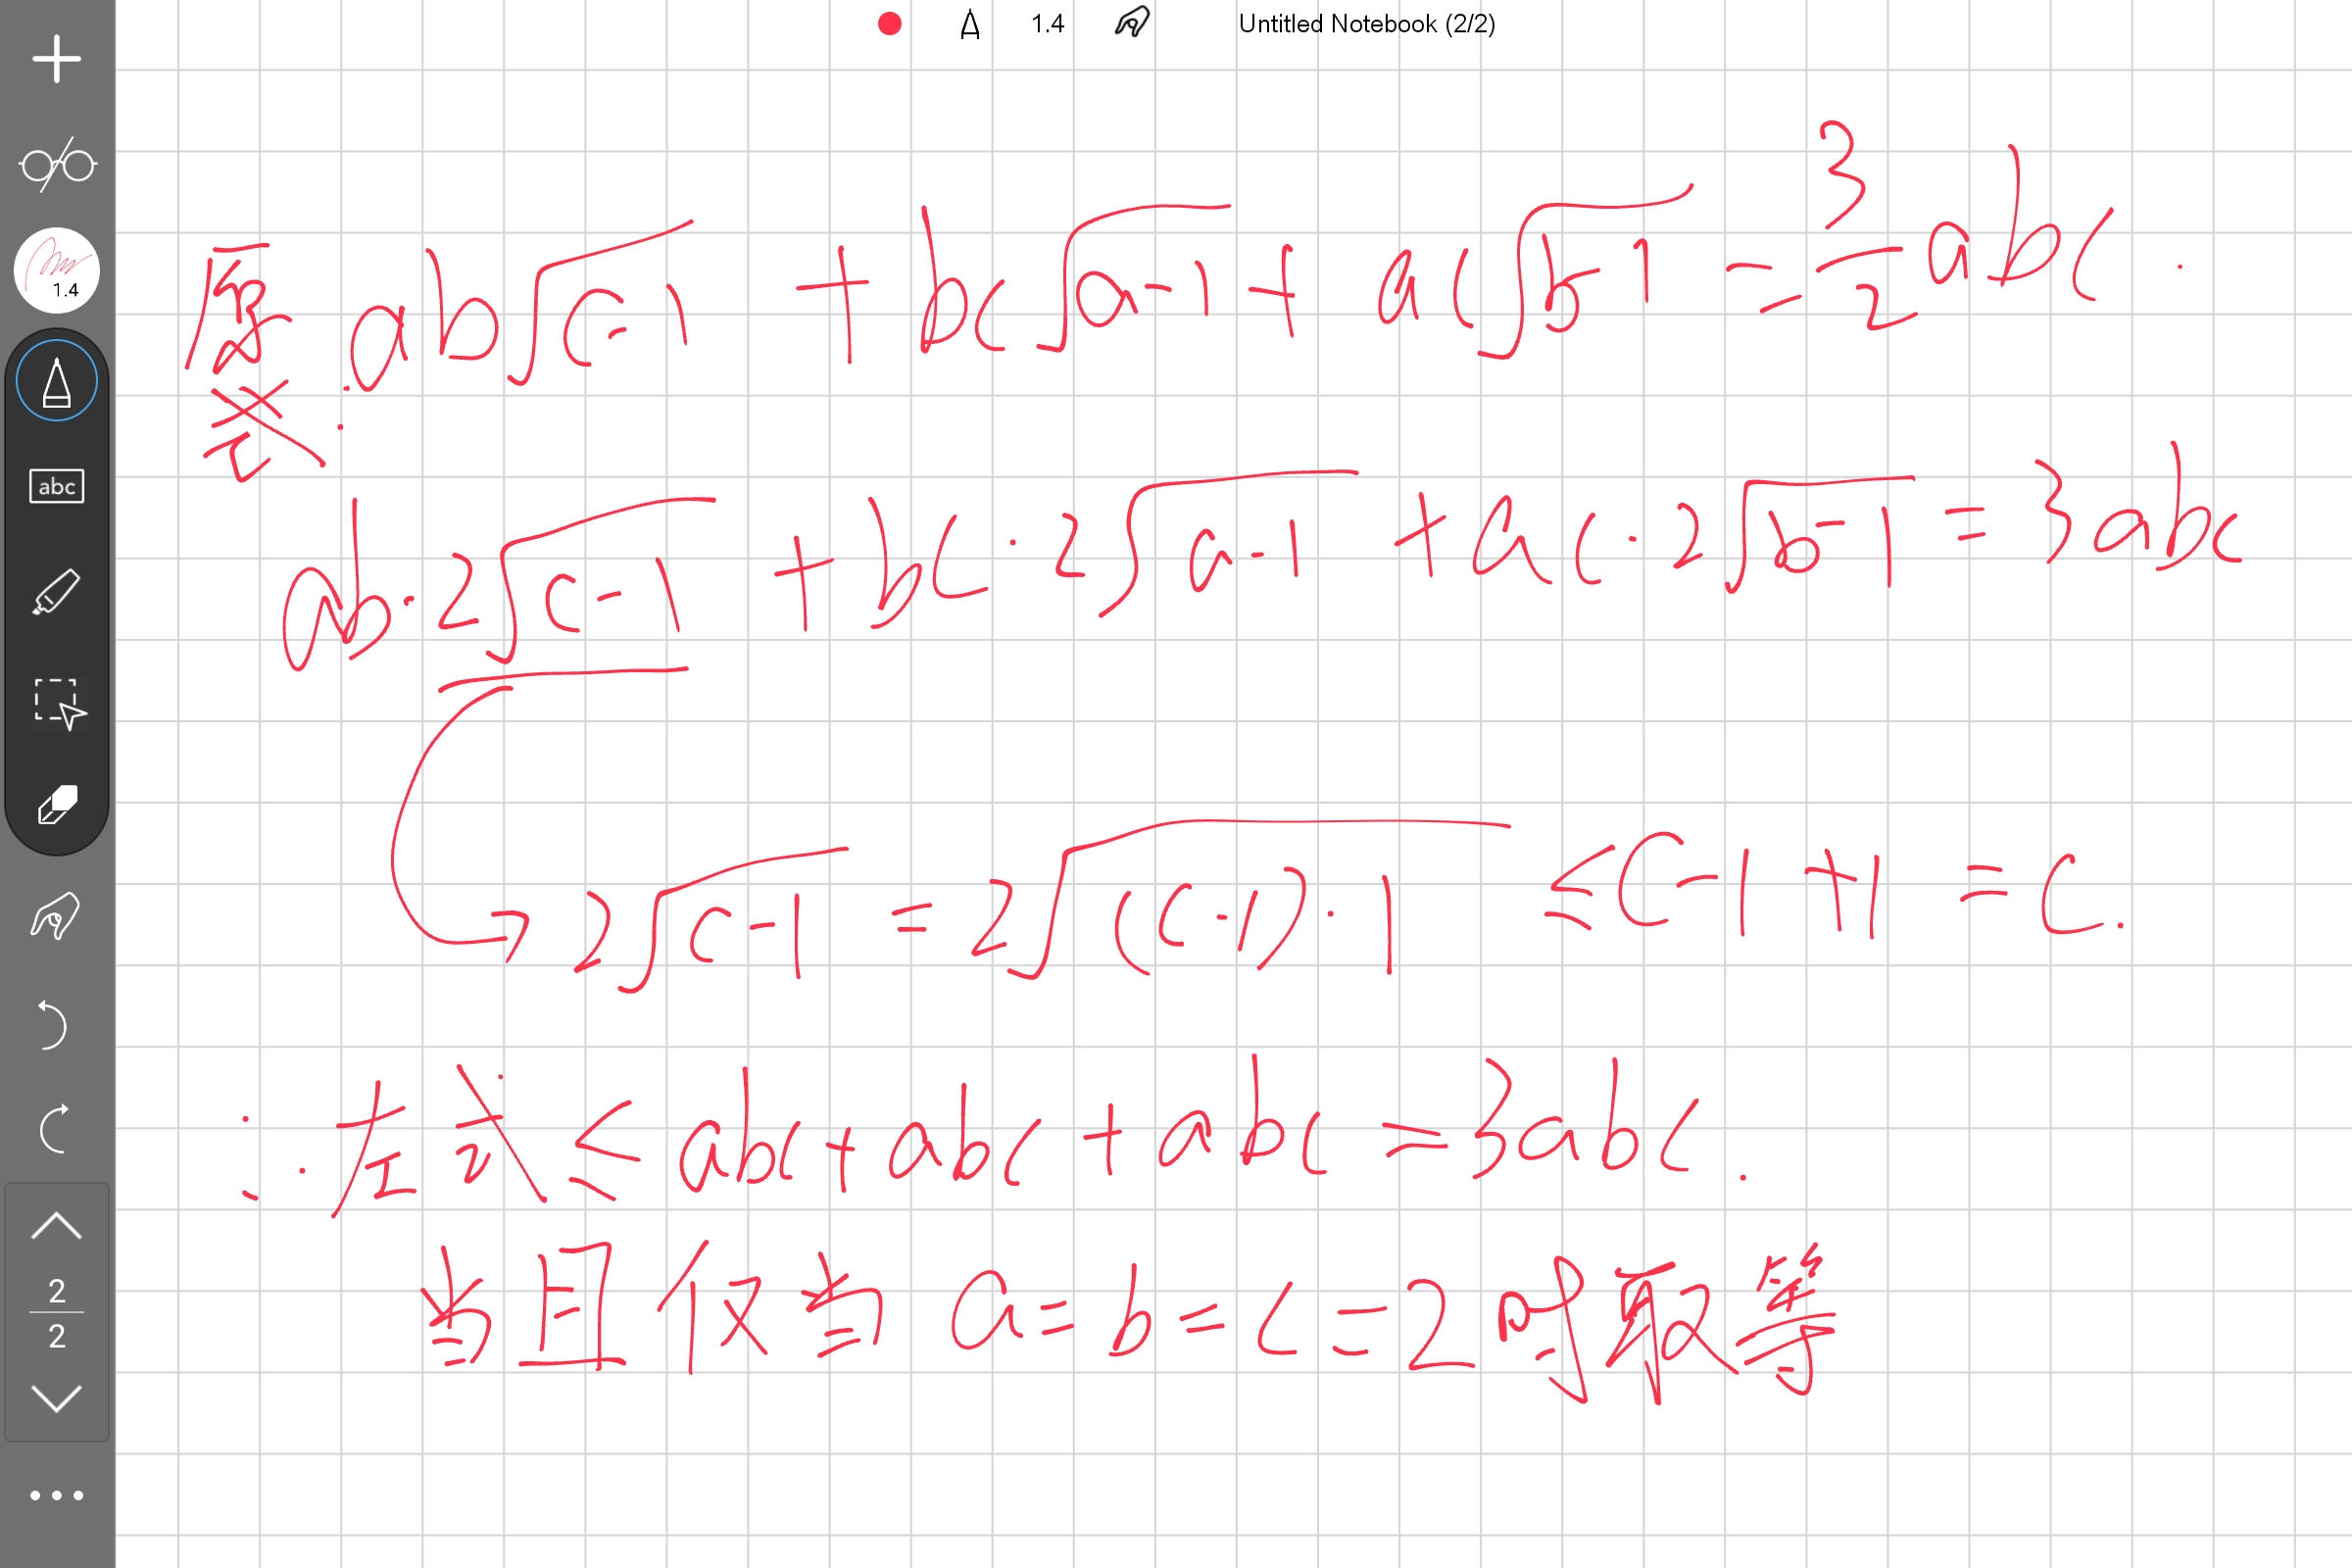 1.4 Untitled Notebook (2/2)
1.4
abc
2
2
原式: ab√(c-1) + bc√(a-1) + ac√(b-1) = 3/2 abc.
ab·2√(c-1) + bc·2√(a-1) + ac·2√(b-1) = 3abc
→ 2√(c-1) = 2√((c-1)·1) ≤ c-1+1 = c.
∴ 左式 ≤ abc+abc+abc = 3abc.
当且仅当 a=b=c=2 时取等